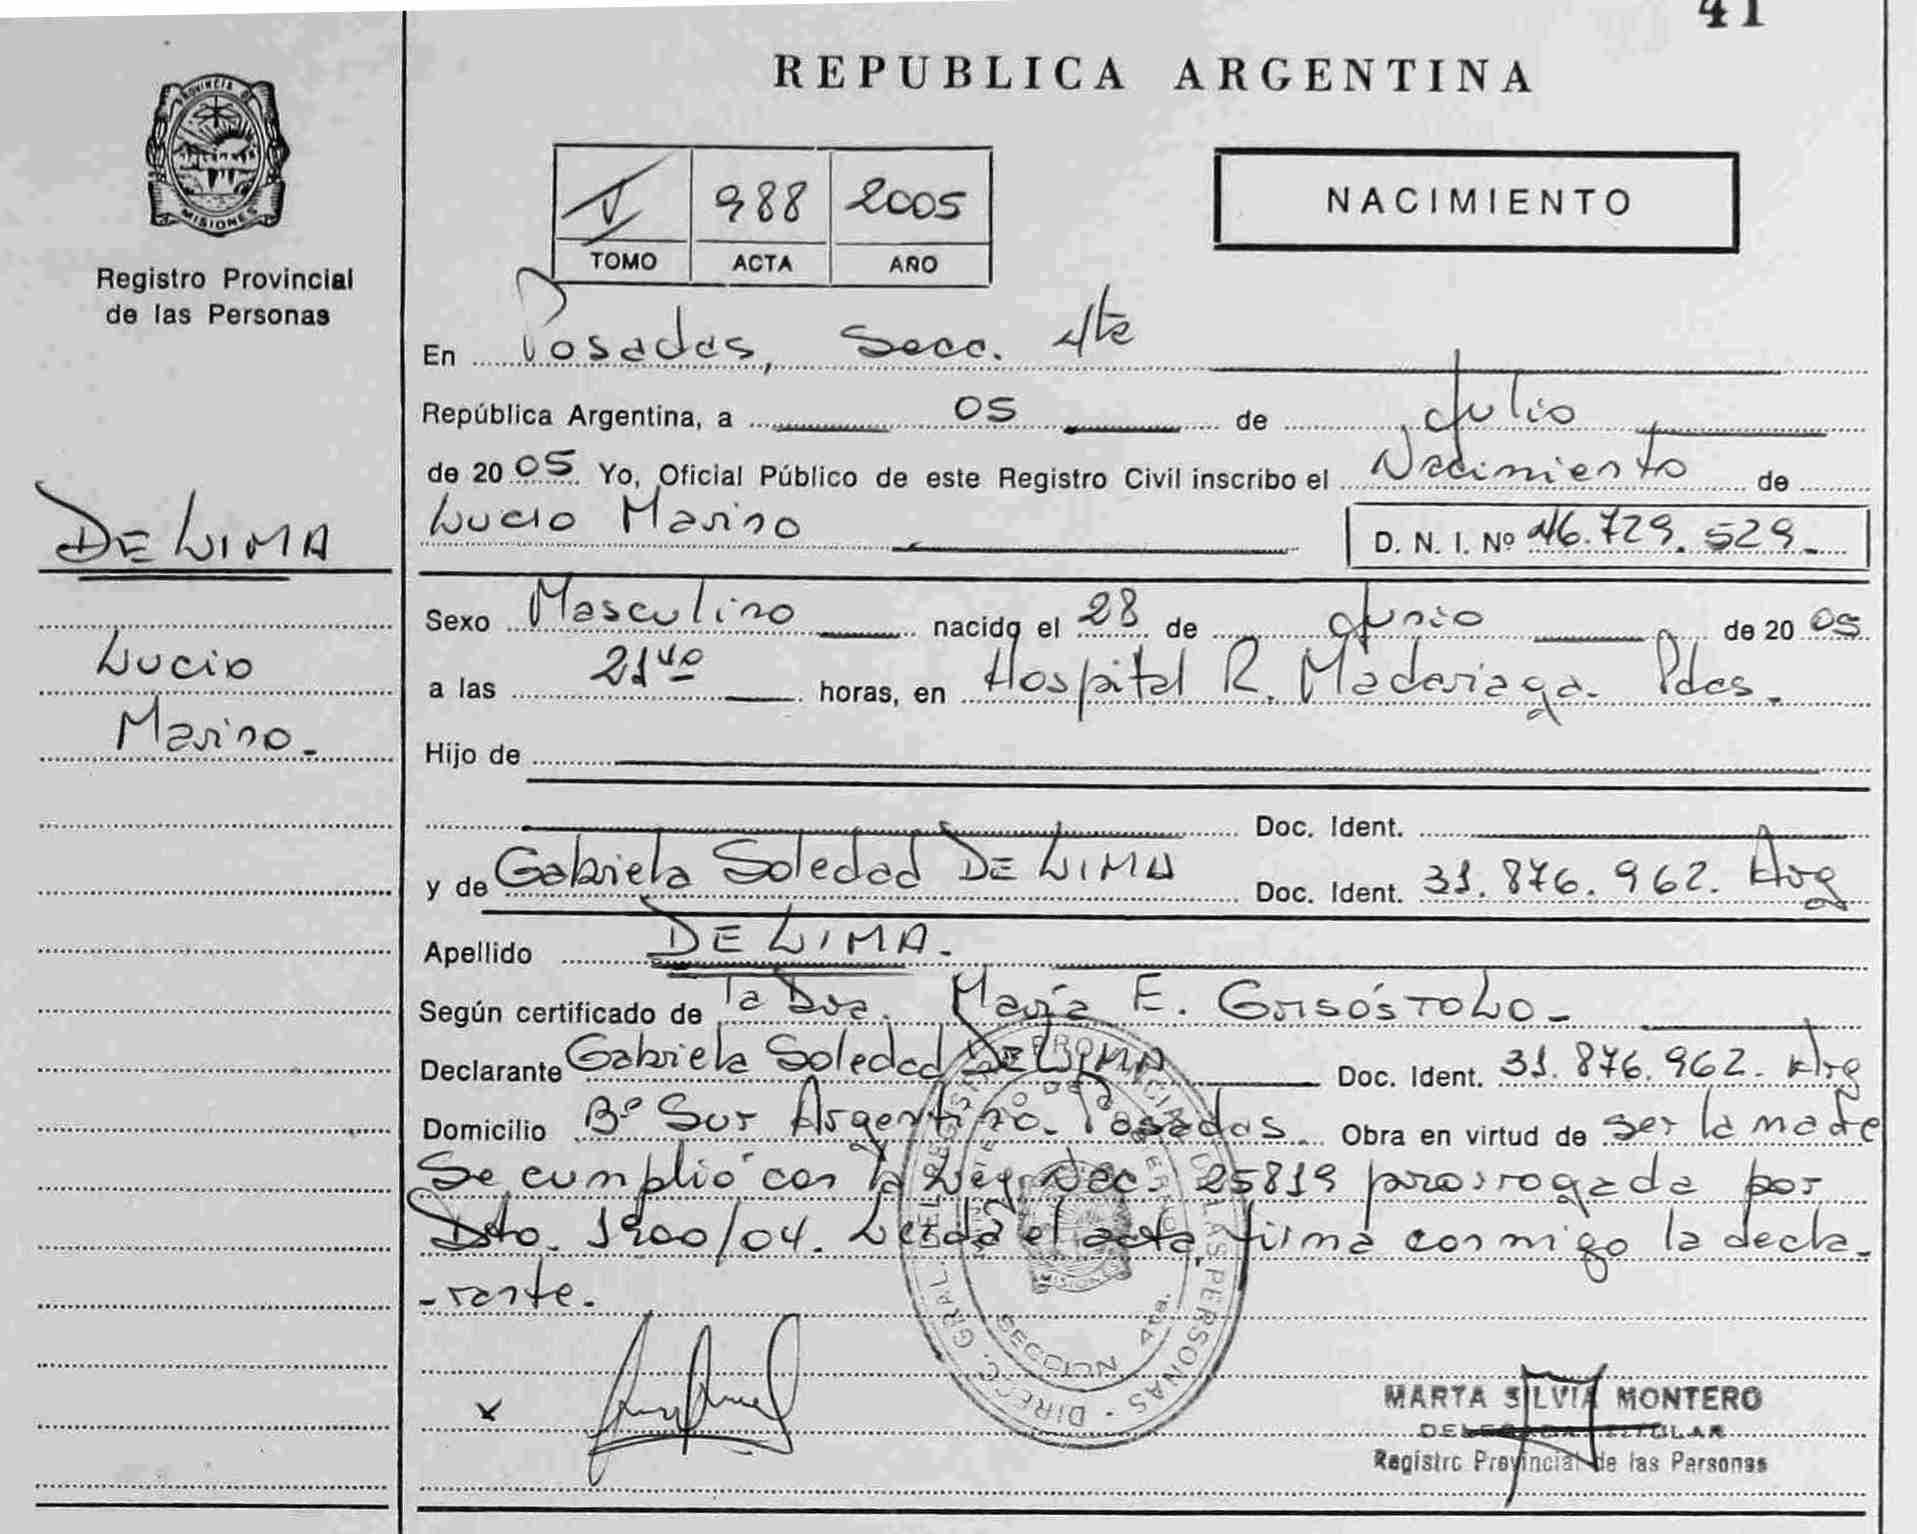 41
REPUBLICA ARGENTINA
PROVINCIA DE
MISIONES
Registro Provincial
de las Personas
I 988 2005
TOMO ACTA AÑO
NACIMIENTO
En Posadas, Secc. 4ta
República Argentina, a 05 de Julio
de 2005 Yo, Oficial Público de este Registro Civil inscribo el Nacimiento de
Lucio Marino D. N. I. Nº 46.729.529.
DE LIMA
Lucio
Marino.
Sexo Masculino nacido el 28 de Junio de 2005
a las 21 40 horas, en Hospital R. Madariaga. Pdas.
Hijo de
Doc. Ident.
y de Gabriela Soledad DE LIMA Doc. Ident. 31.876.962. Arg
Apellido DE LIMA.
Según certificado de la Dra. María E. GRISÓSTOLO.
Declarante Gabriela Soledad DE LIMA Doc. Ident. 31.876.962. Arg
Domicilio Bº Sur Argentino. Posadas. Obra en virtud de ser la madre
Se cumplió con la Ley Nac. 25819 prorrogada por
Dto. 1900/04. Leída el acta, firma conmigo la decla-
-rante.
x
DIRECC. GRAL. DEL REGISTRO PROVINCIAL DE LAS PERSONAS
MISIONES
SECCION 4ta.
MARTA SILVIA MONTERO
DELEGADA TITULAR
Registro Provincial de las Personas